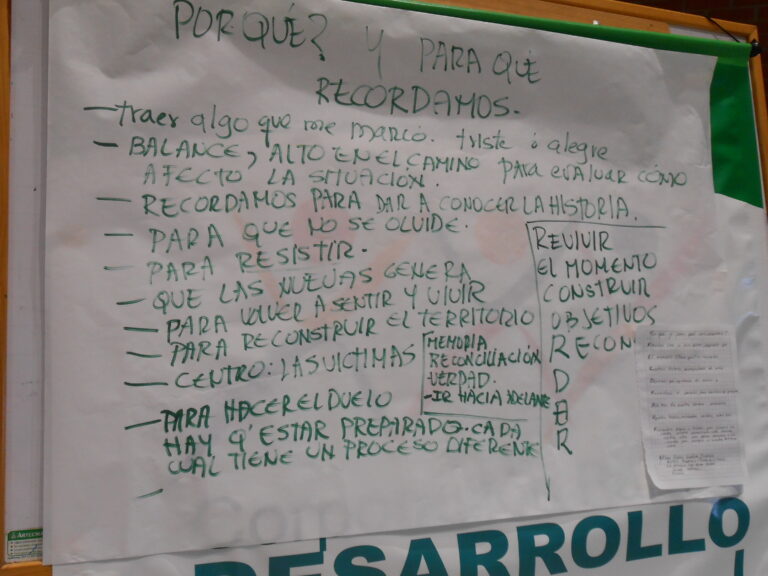 PORQUÉ? Y PARA QUÉ
RECORDAMOS.
— traer algo que me marcó. triste ó alegre
— BALANCE, ALTO EN EL CAMINO PARA EVALUAR CÓMO
AFECTO LA SITUACIÓN.
— RECORDAMOS PARA DAR A CONOCER LA HISTORIA.
— PARA QUE NO SE OLVIDE.
— PARA RESISTIR.
— QUE LAS NUEVAS GENERA
— PARA VOLVER A SENTIR Y VIVIR
— PARA RECONSTRUIR EL TERRITORIO
— CENTRO: LAS VICTIMAS
MEMORIA
RECONCILIACIÓN
VERDAD.
-IR HACIA ADELANE
— PARA HACER EL DUELO
HAY Q' ESTAR PREPARADO. CADA
CUAL TIENE UN PROCESO DIFERENTE
—
REVIVIR
EL MOMENTO
CONSTRUIR
OBJETIVOS
RECON
D
A
R
DESARROLLO